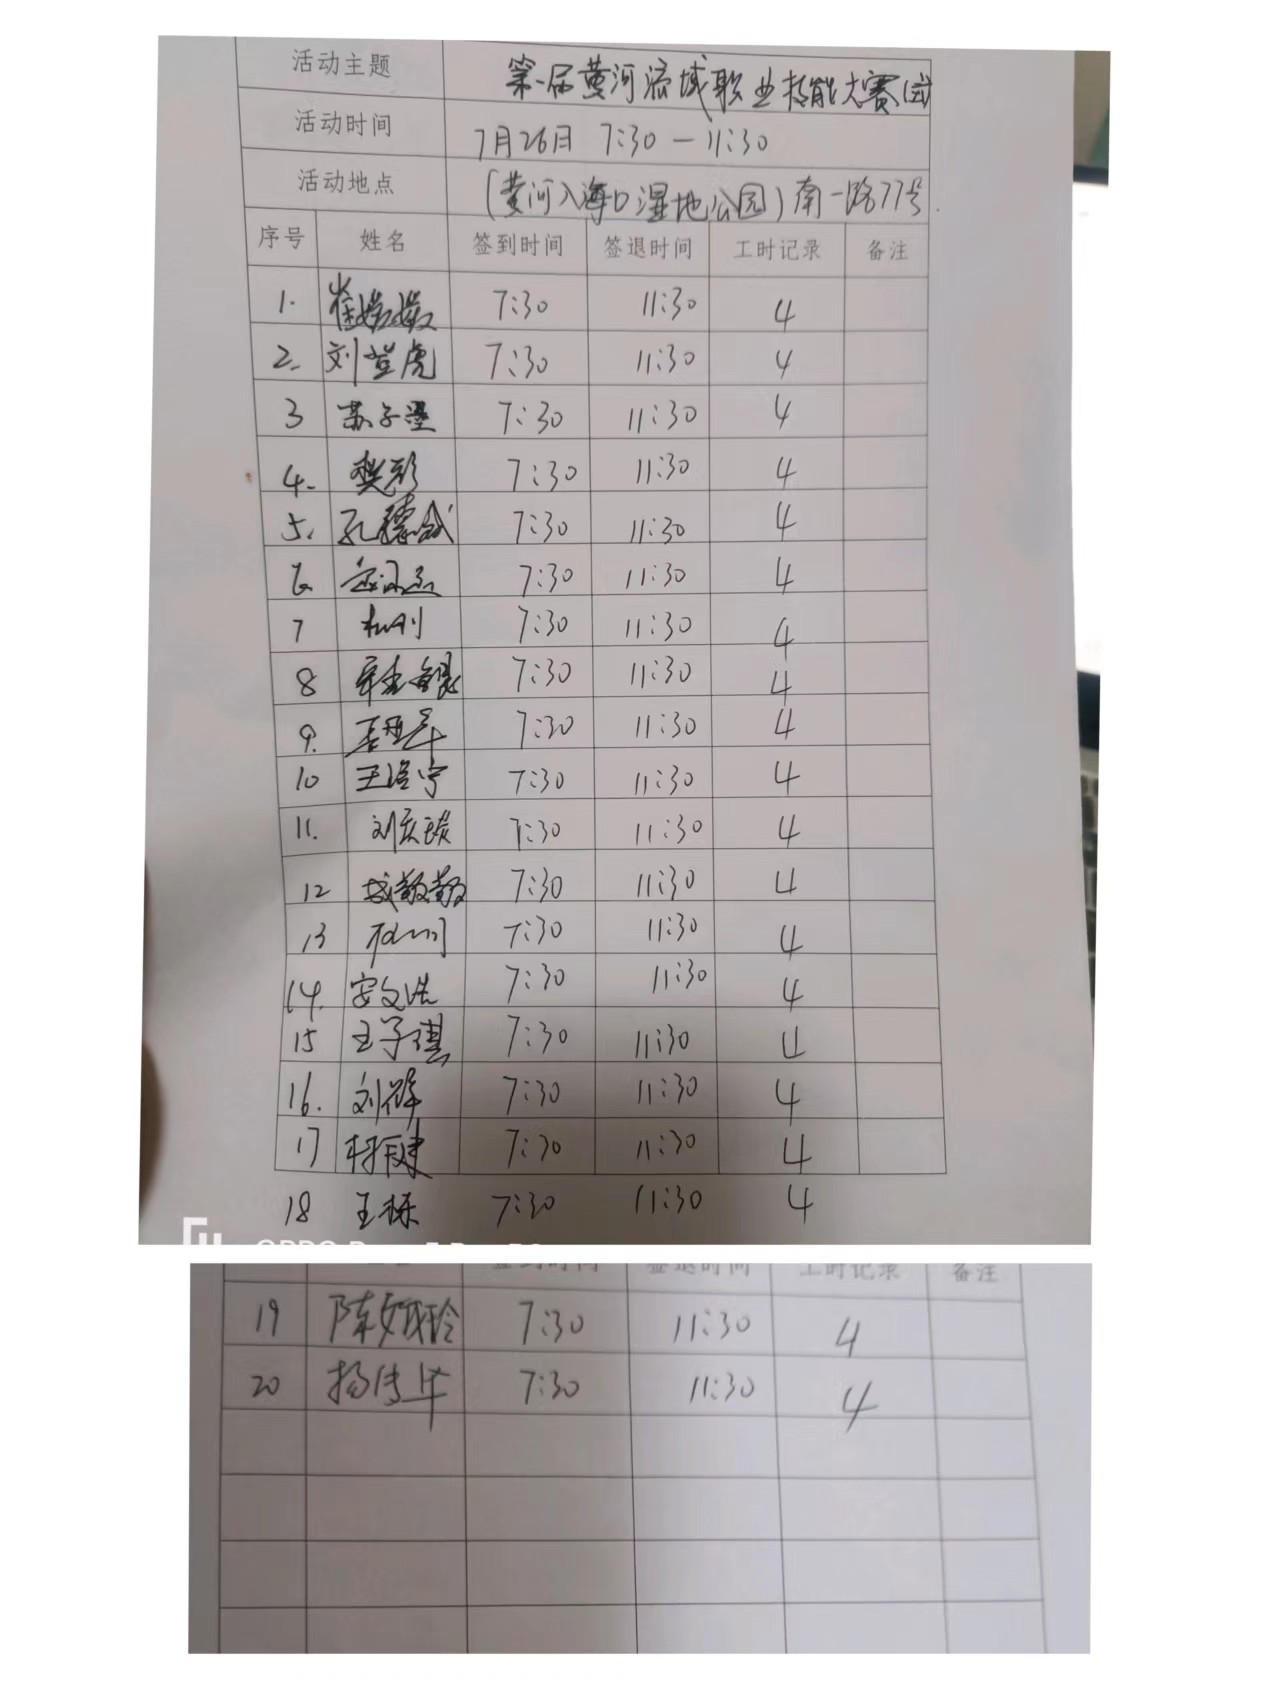 活动主题 第一届黄河流域职业技能大赛
活动时间 7月26日 7:30 — 11:30
活动地点 (黄河入海口湿地公园) 南一路77号
序号 姓名 签到时间 签退时间 工时记录 备注
1. 崔嫒嫒 7:30 11:30 4
2. 刘登虎 7:30 11:30 4
3 苏子墨 7:30 11:30 4
4. 樊彩 7:30 11:30 4
5. 孔德斌 7:30 11:30 4
6 7:30 11:30 4
7 7:30 11:30 4
8 7:30 11:30 4
9. 7:30 11:30 4
10 王浩宁 7:30 11:30 4
11. 刘庆琰 7:30 11:30 4
12 7:30 11:30 4
13 7:30 11:30 4
14. 安文浩 7:30 11:30 4
15 王子琪 7:30 11:30 4
16. 刘 7:30 11:30 4
17 7:30 11:30 4
18 王栋 7:30 11:30 4
签到时间 签退时间 工时记录 备注
19 陈 玲 7:30 11:30 4
20 杨传华 7:30 11:30 4